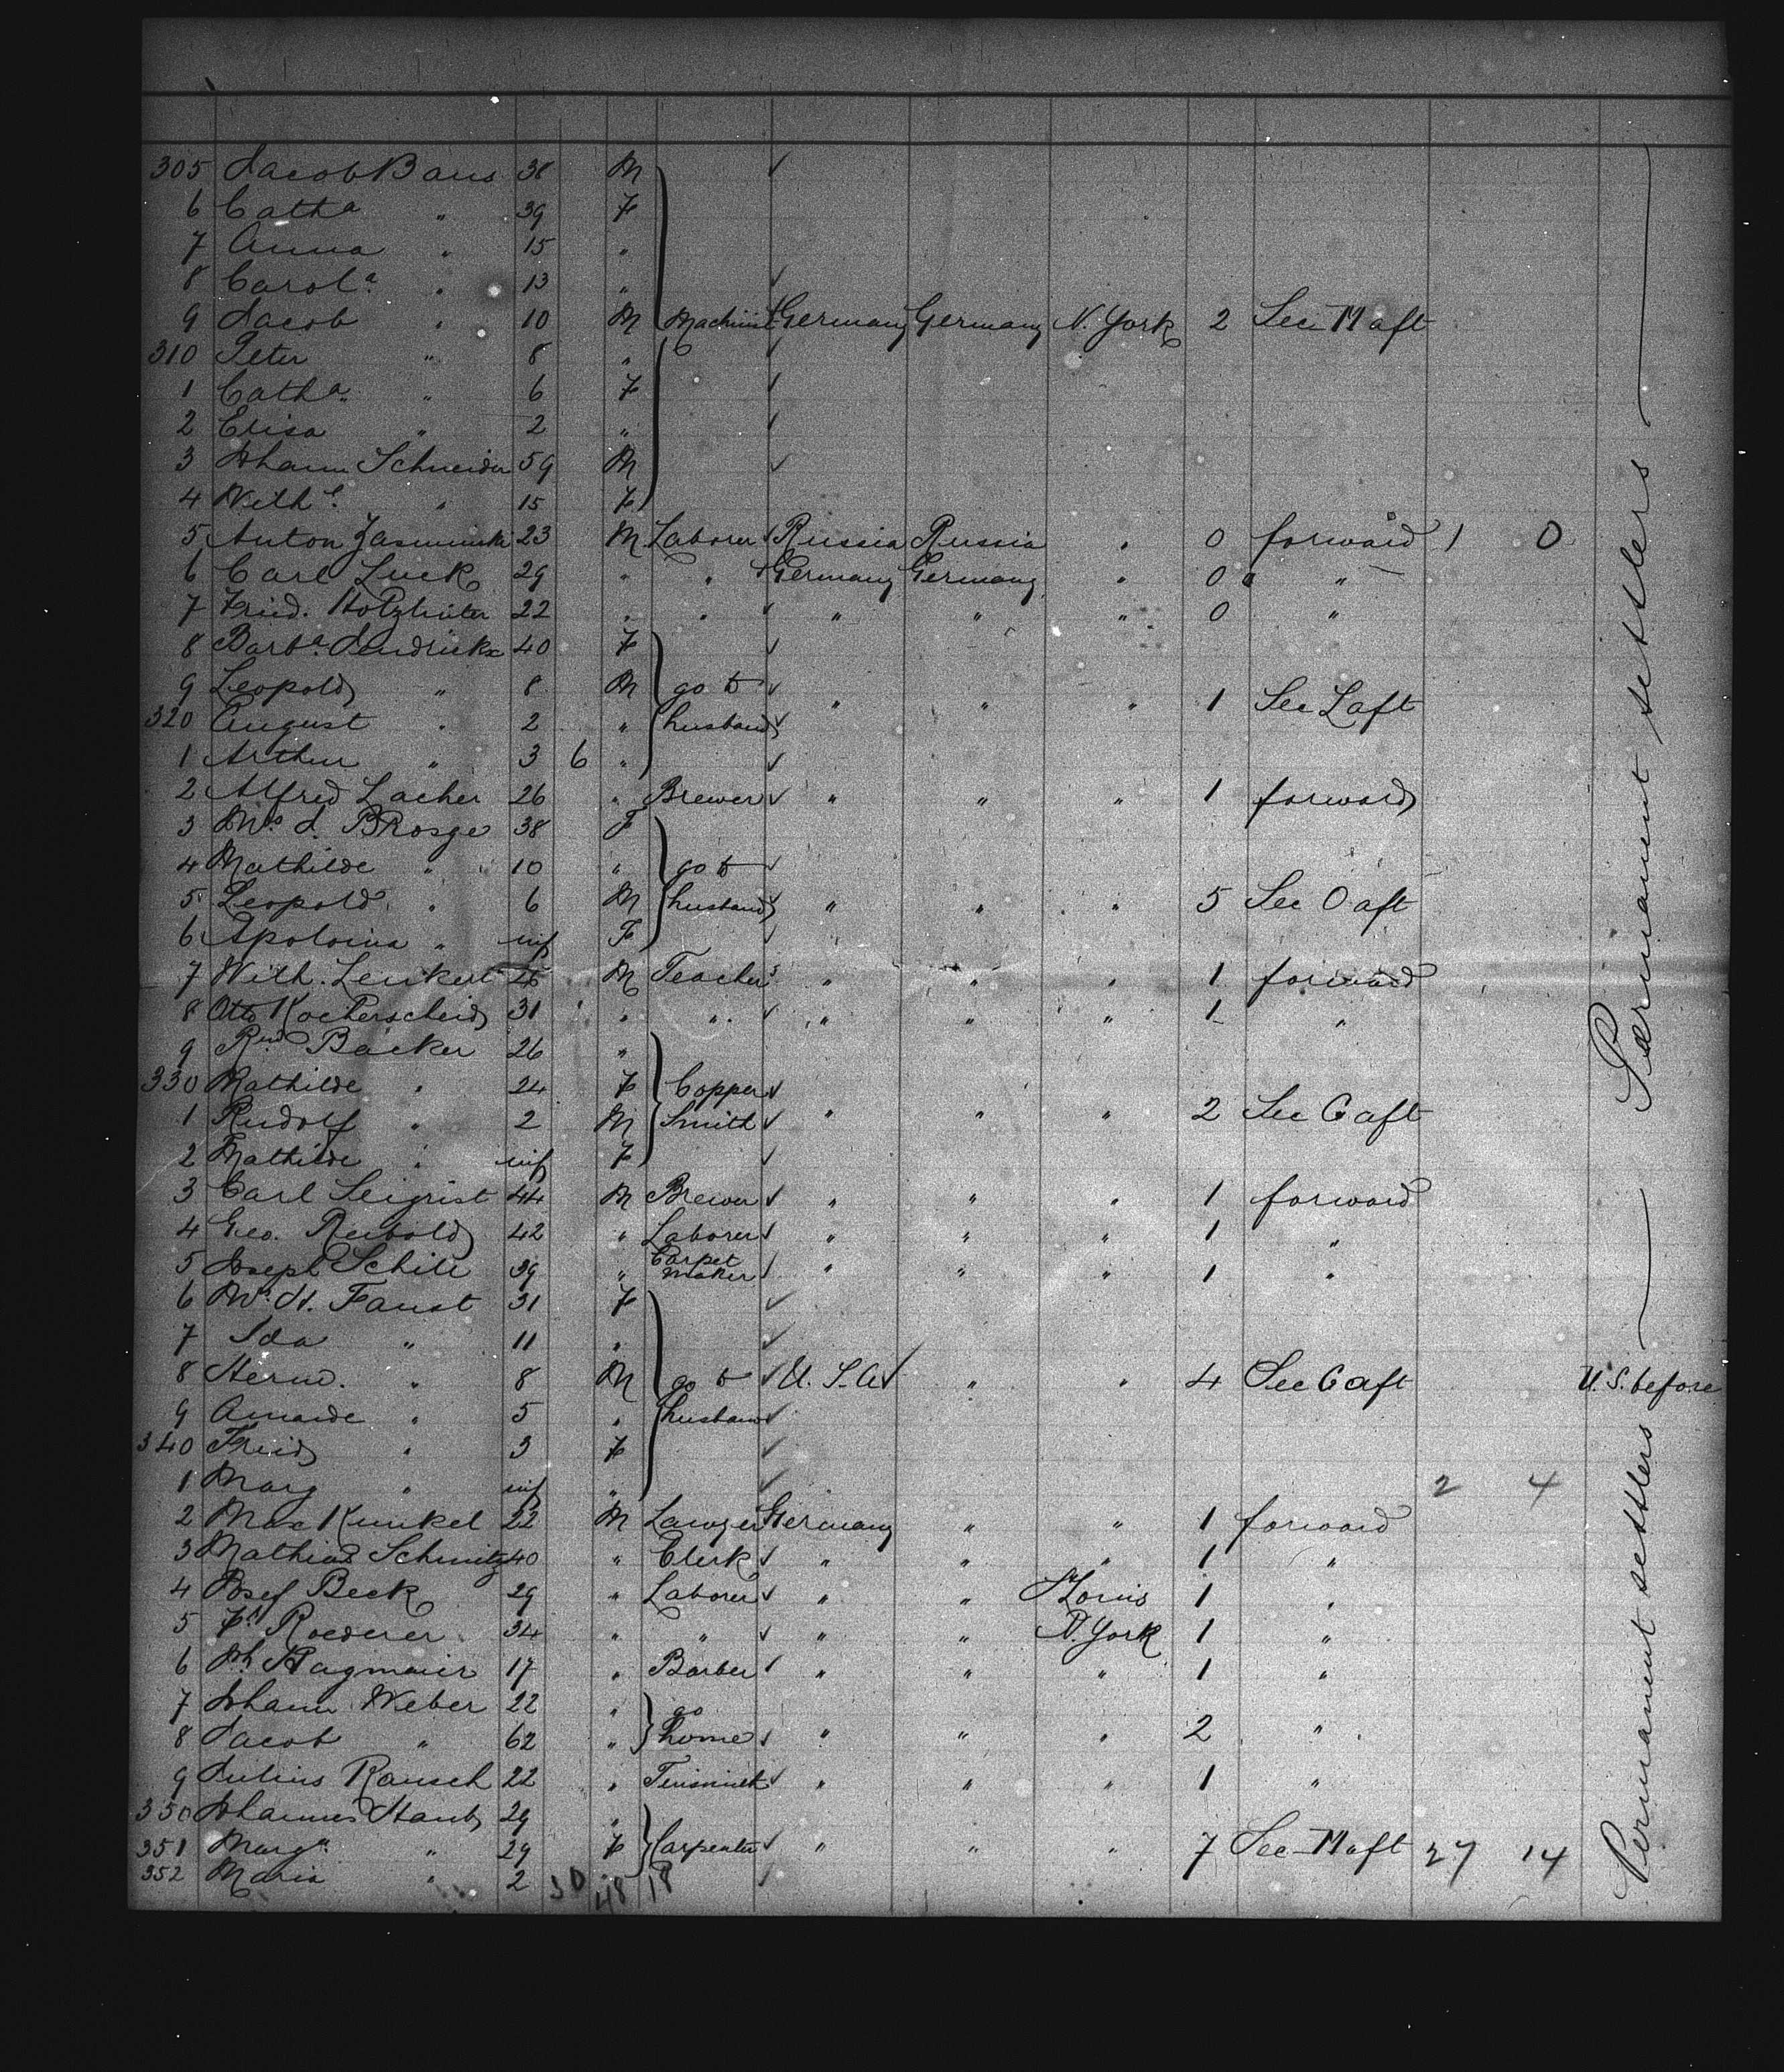 305 Jacob Baus 38 M
6 Catha " 39 F
7 Anna " 15 "
8 Carola " 13 "
9 Jacob " 10 M Machinist Germany Germany N. York 2 Sec M aft
310 Peter " 8 "
1 Catha " 6 F
2 Elisa " 2 "
3 Johann Schneider 59 M
4 " 15 F
5 Anton 23 M Laborer Russia Russia " 0 forward 1 0
6 Carl Luck 29 " " Germany Germany " 0 "
7 Fried. Holzhüter 22 " " " " " 0 "
8 Barba Hendrickx 40 F
9 Leopold " 8 M go to " " " 1 Sec L aft
320 August " 2 " husband
1 Arthur " 3 6 "
2 Alfred Lacher 26 " Brewer " " " 1 forward
3 Mrs J. Brosge 38 F
4 Mathilde " 10 " go to
5 Leopold " 6 M husband " " " 5 Sec O aft
6 " inf F
7 Wilh. Lenkert 26 M Teacher " " " 1 forward
8 Otto Kocherscheid 31 " " " " " 1 "
9 Rud Backer 26 "
330 Mathilde " 24 F Copper
1 Rudolf " 2 M Smith " " " 2 Sec C aft
2 Mathilde " inf F
3 Carl Seigrist 44 M Brewer " " " 1 forward
4 Geo. Reibold 42 " Laborer " " " 1 "
5 Joseph 39 " Carpet maker " " " 1 "
6 Mrs H. Faust 31 F
7 Ida " 11 "
8 Herm. " 8 M go to U.S.A " " 4 Sec C aft U.S. before
9 " 5 " husband
340 Fried " 3 F
1 Marg " inf " 2 4
2 Max Kunkel 22 M Lawyer Germany " " 1 forward
3 Mathias Schmitz 40 " Clerk " " " 1 "
4 Josef Beck 29 " Laborer " " St Louis 1 "
5 Fr Roederer 34 " " " " N. York 1 "
6 Joh Hagmaier 17 " Barber " " " 1 "
7 Johann Weber 22 " go
8 Jacob " 62 " home " " " 2 "
9 Julius Rausch 22 " Tinsmith " " " 1 "
350 Johannes Staub 29 "
351 Marga " 29 F Carpenter " " " 7 Sec M aft 27 14
352 Maria " 2 " 30 48 18
Permanent settlers
Permanent settlers